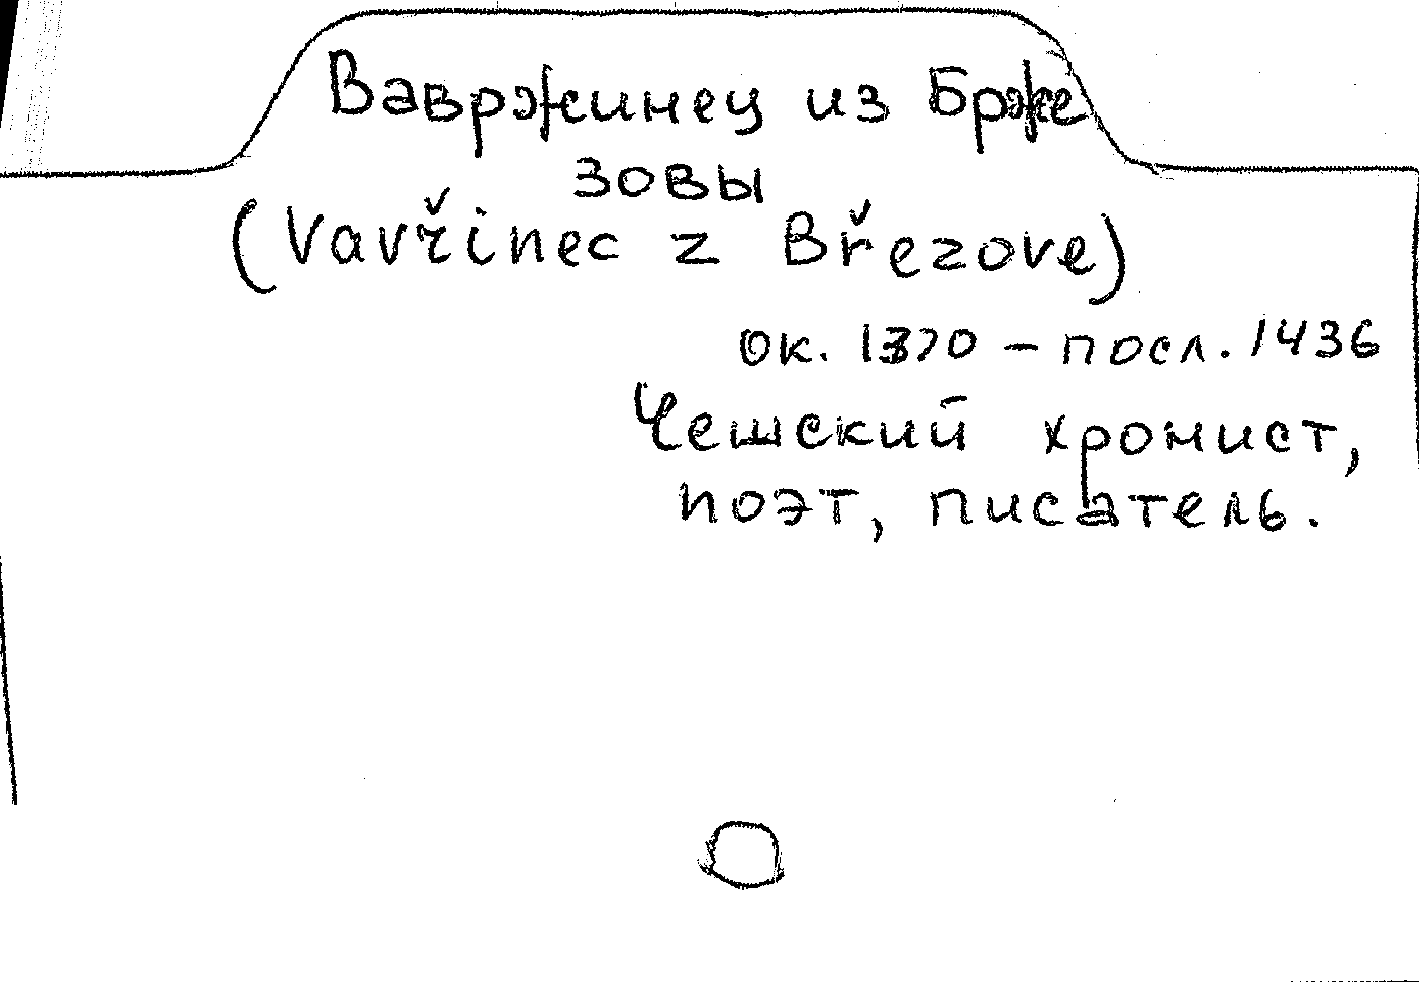 Вавржинец из Брже
зовы
(Vavřinec z Březove)
ок. 1370 – посл. 1436
Чешский хронист,
поэт, писатель.